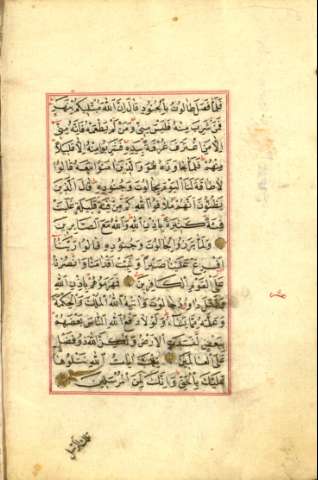 فَلَمَّا فَصَلَ طَالُوتُ بِالْجُنُودِ قَالَ اِنَّ اللّٰهَ مُبْتَلِيكُمْ بِنَهَرٍ
فَمَنْ شَرِبَ مِنْهُ فَلَيْسَ مِنِّي وَمَنْ لَمْ يَطْعَمْهُ فَاِنَّهُ مِنِّي
اِلَّا مَنِ اغْتَرَفَ غُرْفَةً بِيَدِهِ فَشَرِبُوا مِنْهُ اِلَّا قَلِيلًا
مِنْهُمْ فَلَمَّا جَاوَزَهُ هُوَ وَالَّذِينَ اٰمَنُوا مَعَهُ قَالُوا
لَا طَاقَةَ لَنَا الْيَوْمَ بِجَالُوتَ وَجُنُودِهِ قَالَ الَّذِينَ
يَظُنُّونَ اَنَّهُمْ مُلَاقُوا اللّٰهِ كَمْ مِنْ فِئَةٍ قَلِيلَةٍ غَلَبَتْ
فِئَةً كَثِيرَةً بِاِذْنِ اللّٰهِ وَاللّٰهُ مَعَ الصَّابِرِينَ
وَلَمَّا بَرَزُوا لِجَالُوتَ وَجُنُودِهِ قَالُوا رَبَّنَا
اَفْرِغْ عَلَيْنَا صَبْرًا وَثَبِّتْ اَقْدَامَنَا وَانْصُرْنَا
عَلَى الْقَوْمِ الْكَافِرِينَ فَهَزَمُوهُمْ بِاِذْنِ اللّٰهِ
وَقَتَلَ دَاوُدُ جَالُوتَ وَاٰتٰيهُ اللّٰهُ الْمُلْكَ وَالْحِكْمَةَ
وَعَلَّمَهُ مِمَّا يَشَاءُ وَلَوْلَا دَفْعُ اللّٰهِ النَّاسَ بَعْضَهُمْ
بِبَعْضٍ لَفَسَدَتِ الْاَرْضُ وَلٰكِنَّ اللّٰهَ ذُو فَضْلٍ
عَلَى الْعَالَمِينَ تِلْكَ اٰيَاتُ اللّٰهِ نَتْلُوهَا
عَلَيْكَ بِالْحَقِّ وَاِنَّكَ لَمِنَ الْمُرْسَلِينَ
تلك الرسل